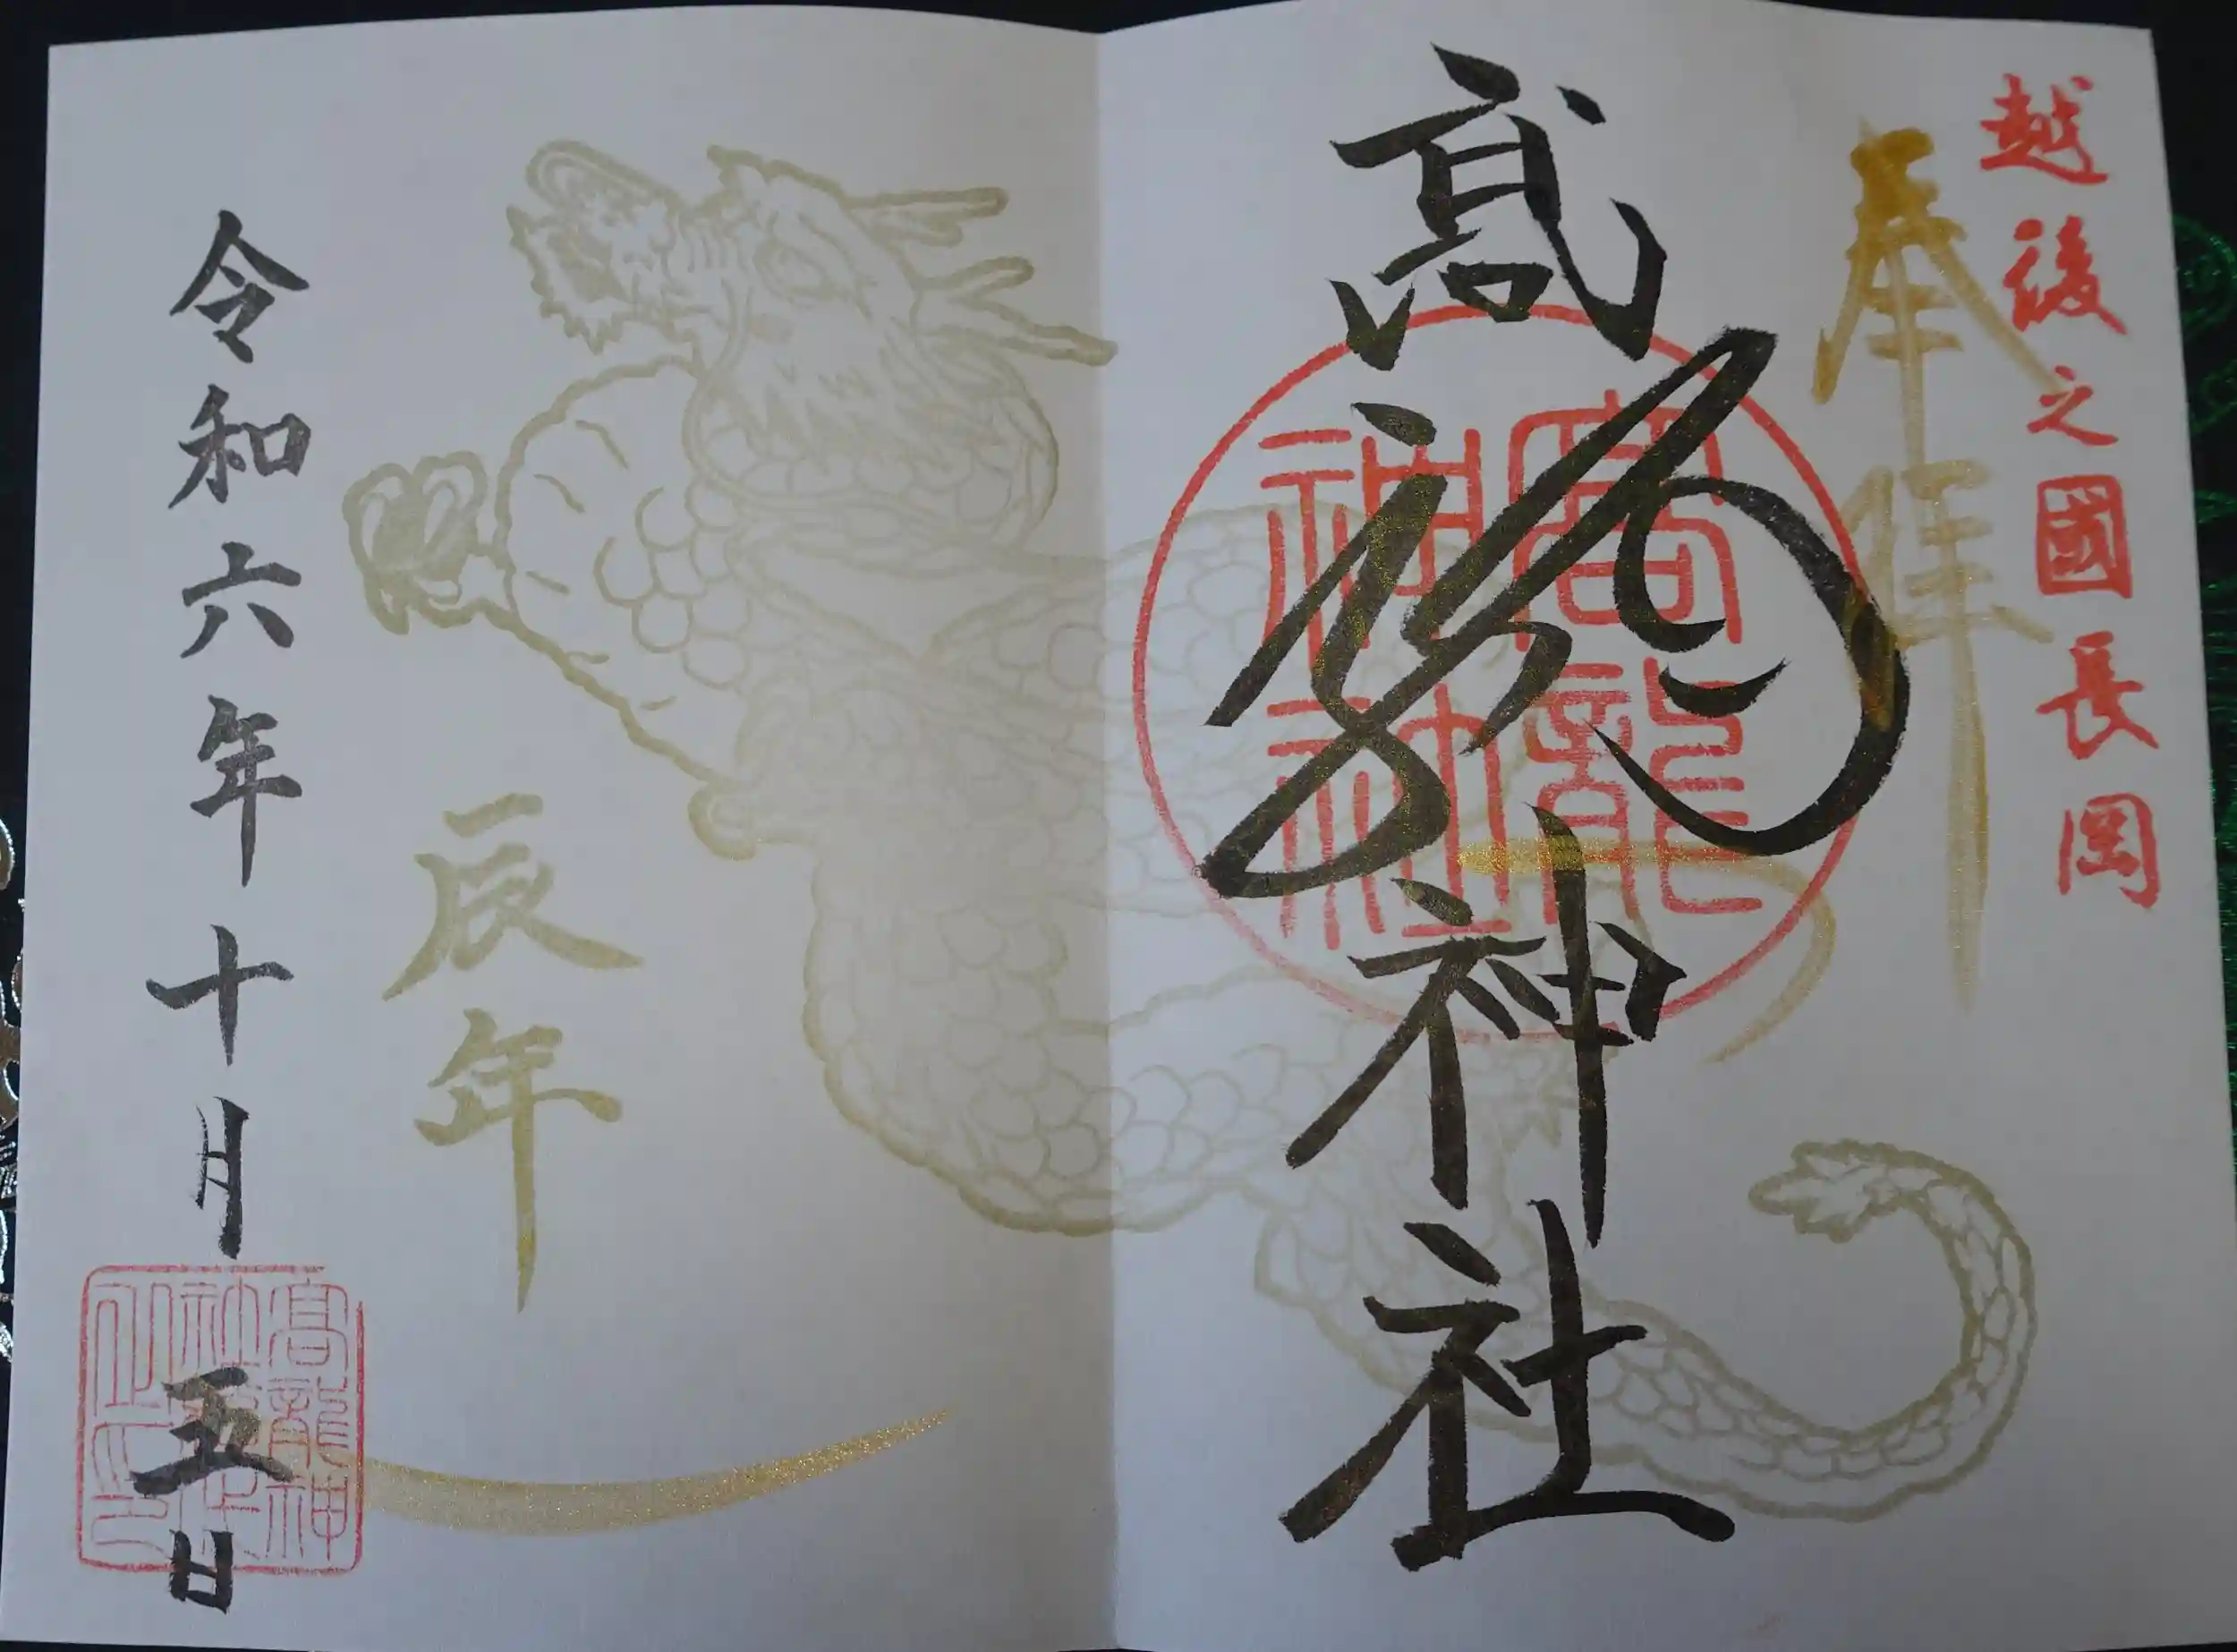 越後之國長岡
奉拝
髙龍神社
高龍
神社
辰年
令和六年十月五日
高龍神